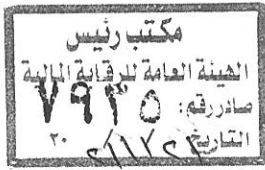 مكتب رئيس
الهيئة العامة للرقابة المالية
صادر رقم: ٧٩٣٥
التاريخ ٢٠